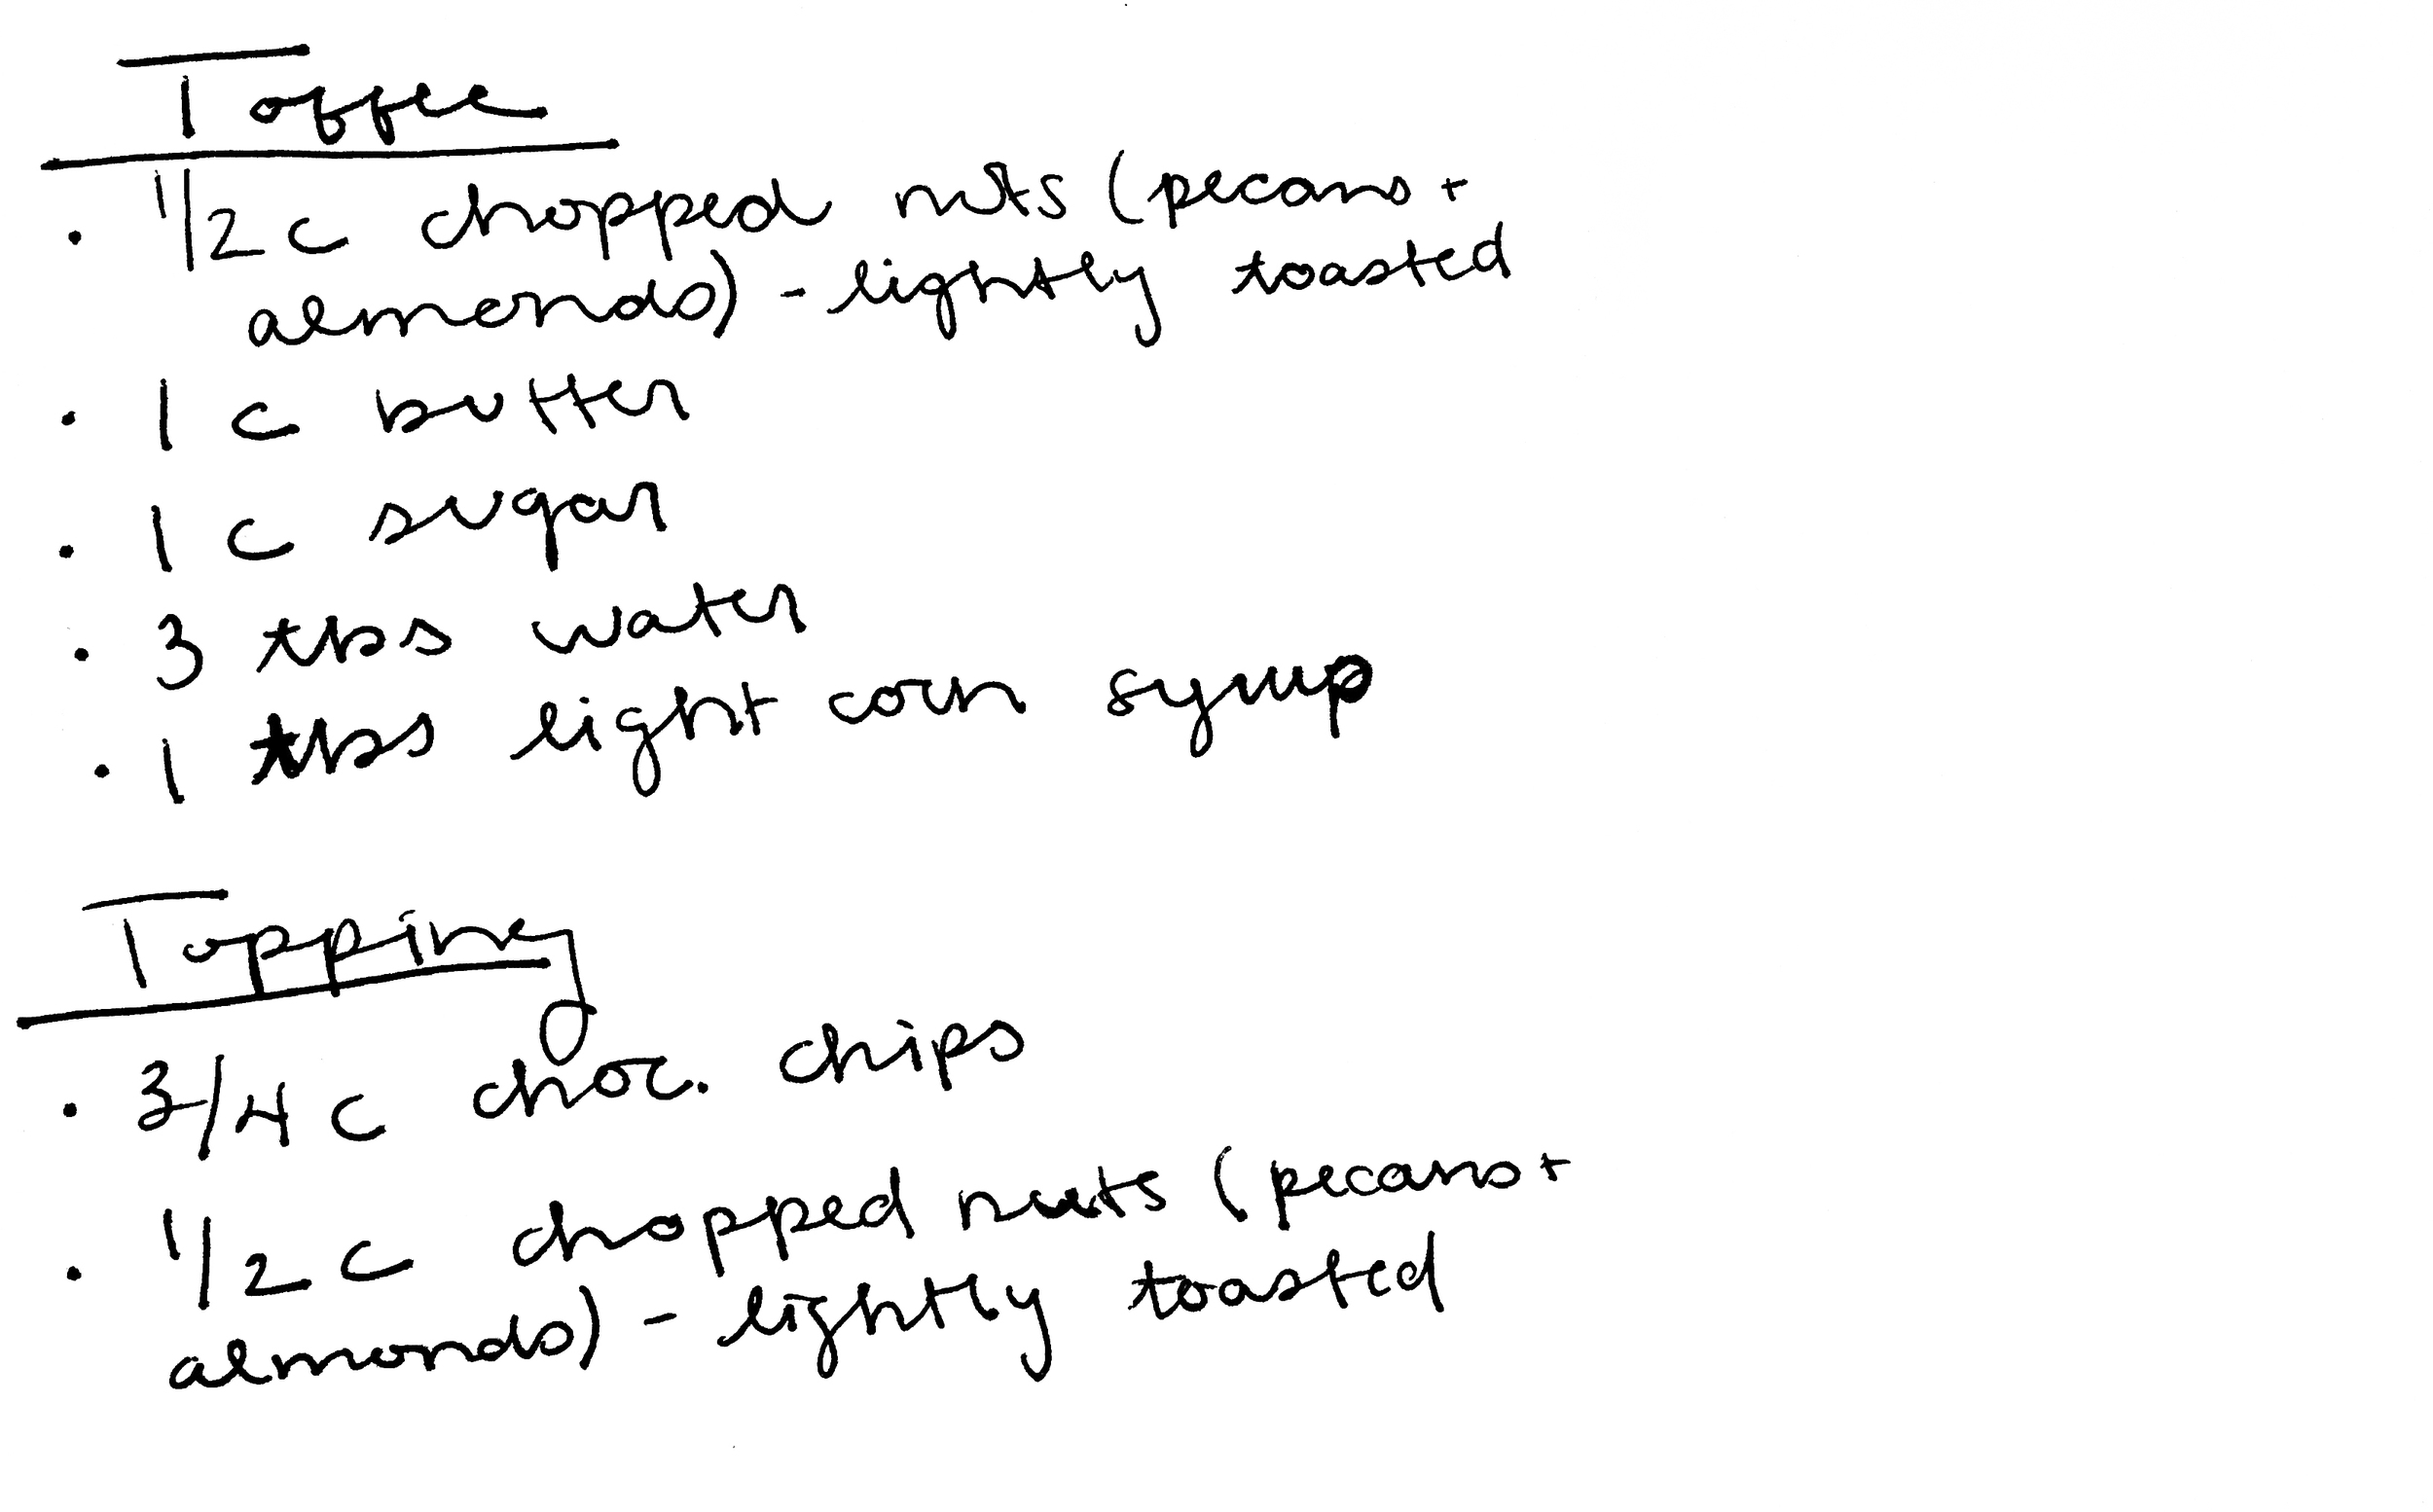 Toffee
• 1/2 c chopped nuts (pecans +
almonds) - lightly toasted
• 1 c butter
• 1 c sugar
• 3 tbs water
• 1 tbs light corn syrup
Topping
• 3/4 c choc. chips
• 1/2 c chopped nuts (pecans +
almonds) - lightly toasted